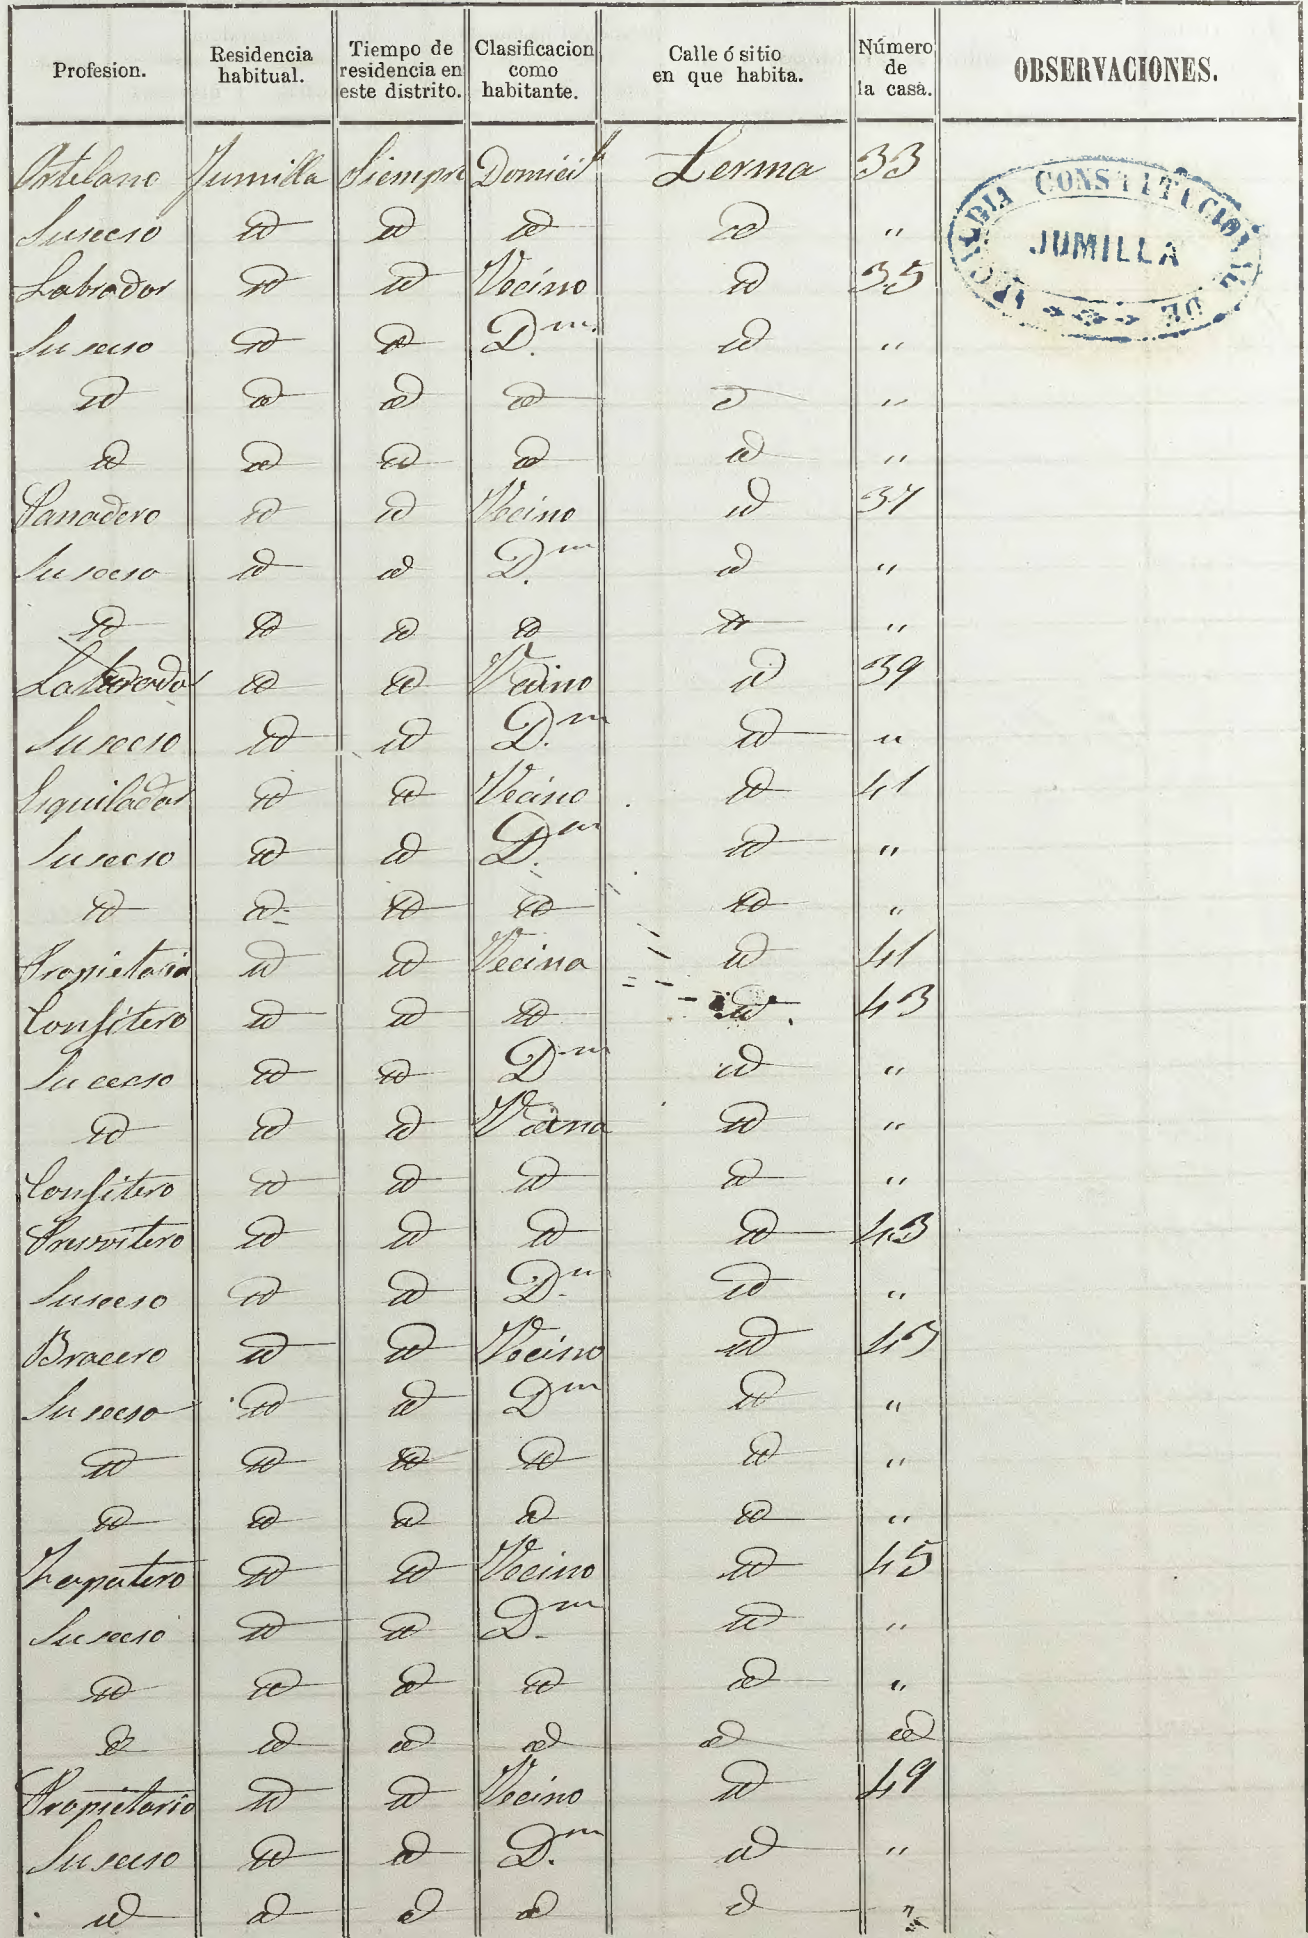 Profesion. Residencia habitual. Tiempo de residencia en este distrito. Clasificacion como habitante. Calle ó sitio en que habita. Número de la casa. OBSERVACIONES.
Ortelano Jumilla Siempre Domicil Lerma 33
Susecso id id id id "
Labrador id id Vecino id 35
Su secso id id D.m id "
id id id id id "
id id id id id "
Panadero id id Vecino id 37
Su secso id id D.m id "
id id id id id "
Labrador id id Vecino id 39
Su secso id id D.m id "
Esquilador id id Vecino id 41
Su secso id id D.m id "
id id id id id "
Propietaria id id Vecina id 41
Confitero id id id id 43
Su cecso id id D.m id "
id id id Vecina id "
Confitero id id id id "
Presvitero id id id id 43
Susecso id id D.m id "
Bracero id id Vecino id 43
Su secso id id Dm id "
id id id id id "
id id id id id "
Zapatero id id Vecino id 45
Su secso id id D.m id "
id id id id id "
id id id id id id
Propietario id id Vecino id 49
Su secso id id D.m id "
id id id id id "
ALCALDIA CONSTITUCIONAL DE
JUMILLA